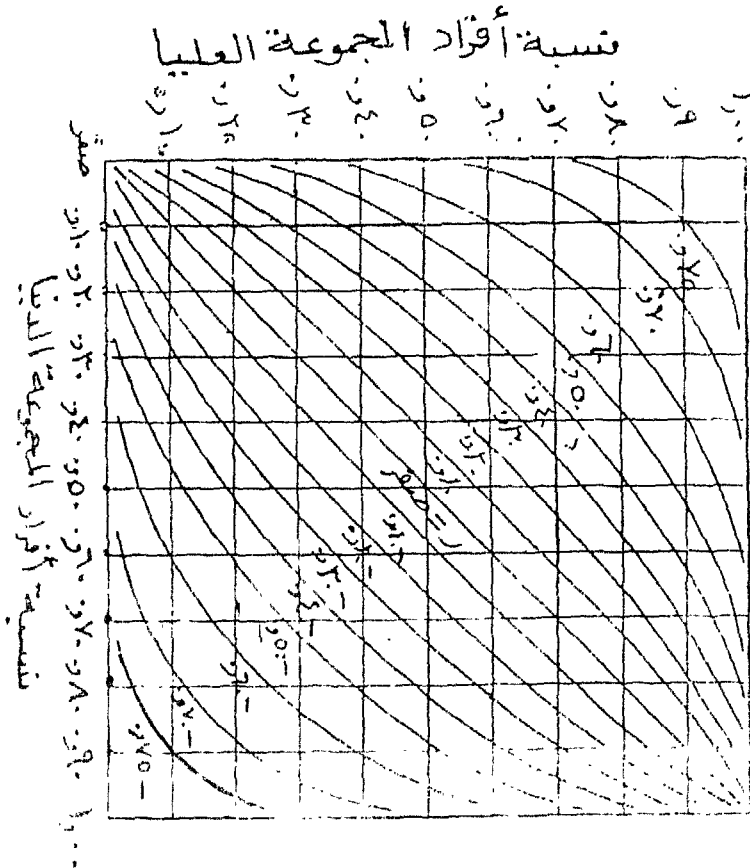 نسبة أفراد المجموعة العليا
صفر ١٠ر ٢٠ر ٣٠ر ٤٠ر ٥٠ر ٦٠ر ٧٠ر ٨٠ر ٩٠ر ١٫٠٠
نسبة أفراد المجموعة الدنيا
١٠ر ٢٠ر ٣٠ر ٤٠ر ٥٠ر ٦٠ر ٧٠ر ٨٠ر ٩٠ر ١٫٠٠
٧٥ر
٧٠ر
٦٠ر
٥٠ر
٤٠ر
٣٠ر
٢٠ر
١٠ر
ر = صفر
−١٠ر
−٢٠ر
−٣٠ر
−٤٠ر
−٥٠ر
−٦٠ر
−٧٠ر
−٧٥ر